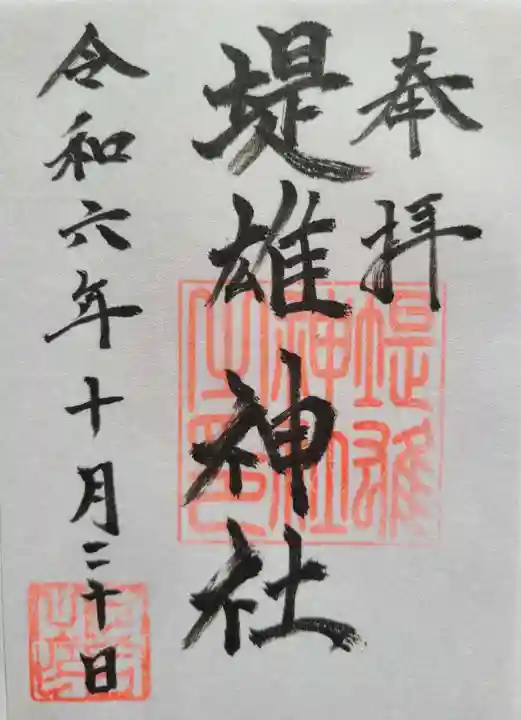 奉拝
堤雄神社
堤雄神社之印
令和六年十月二十日